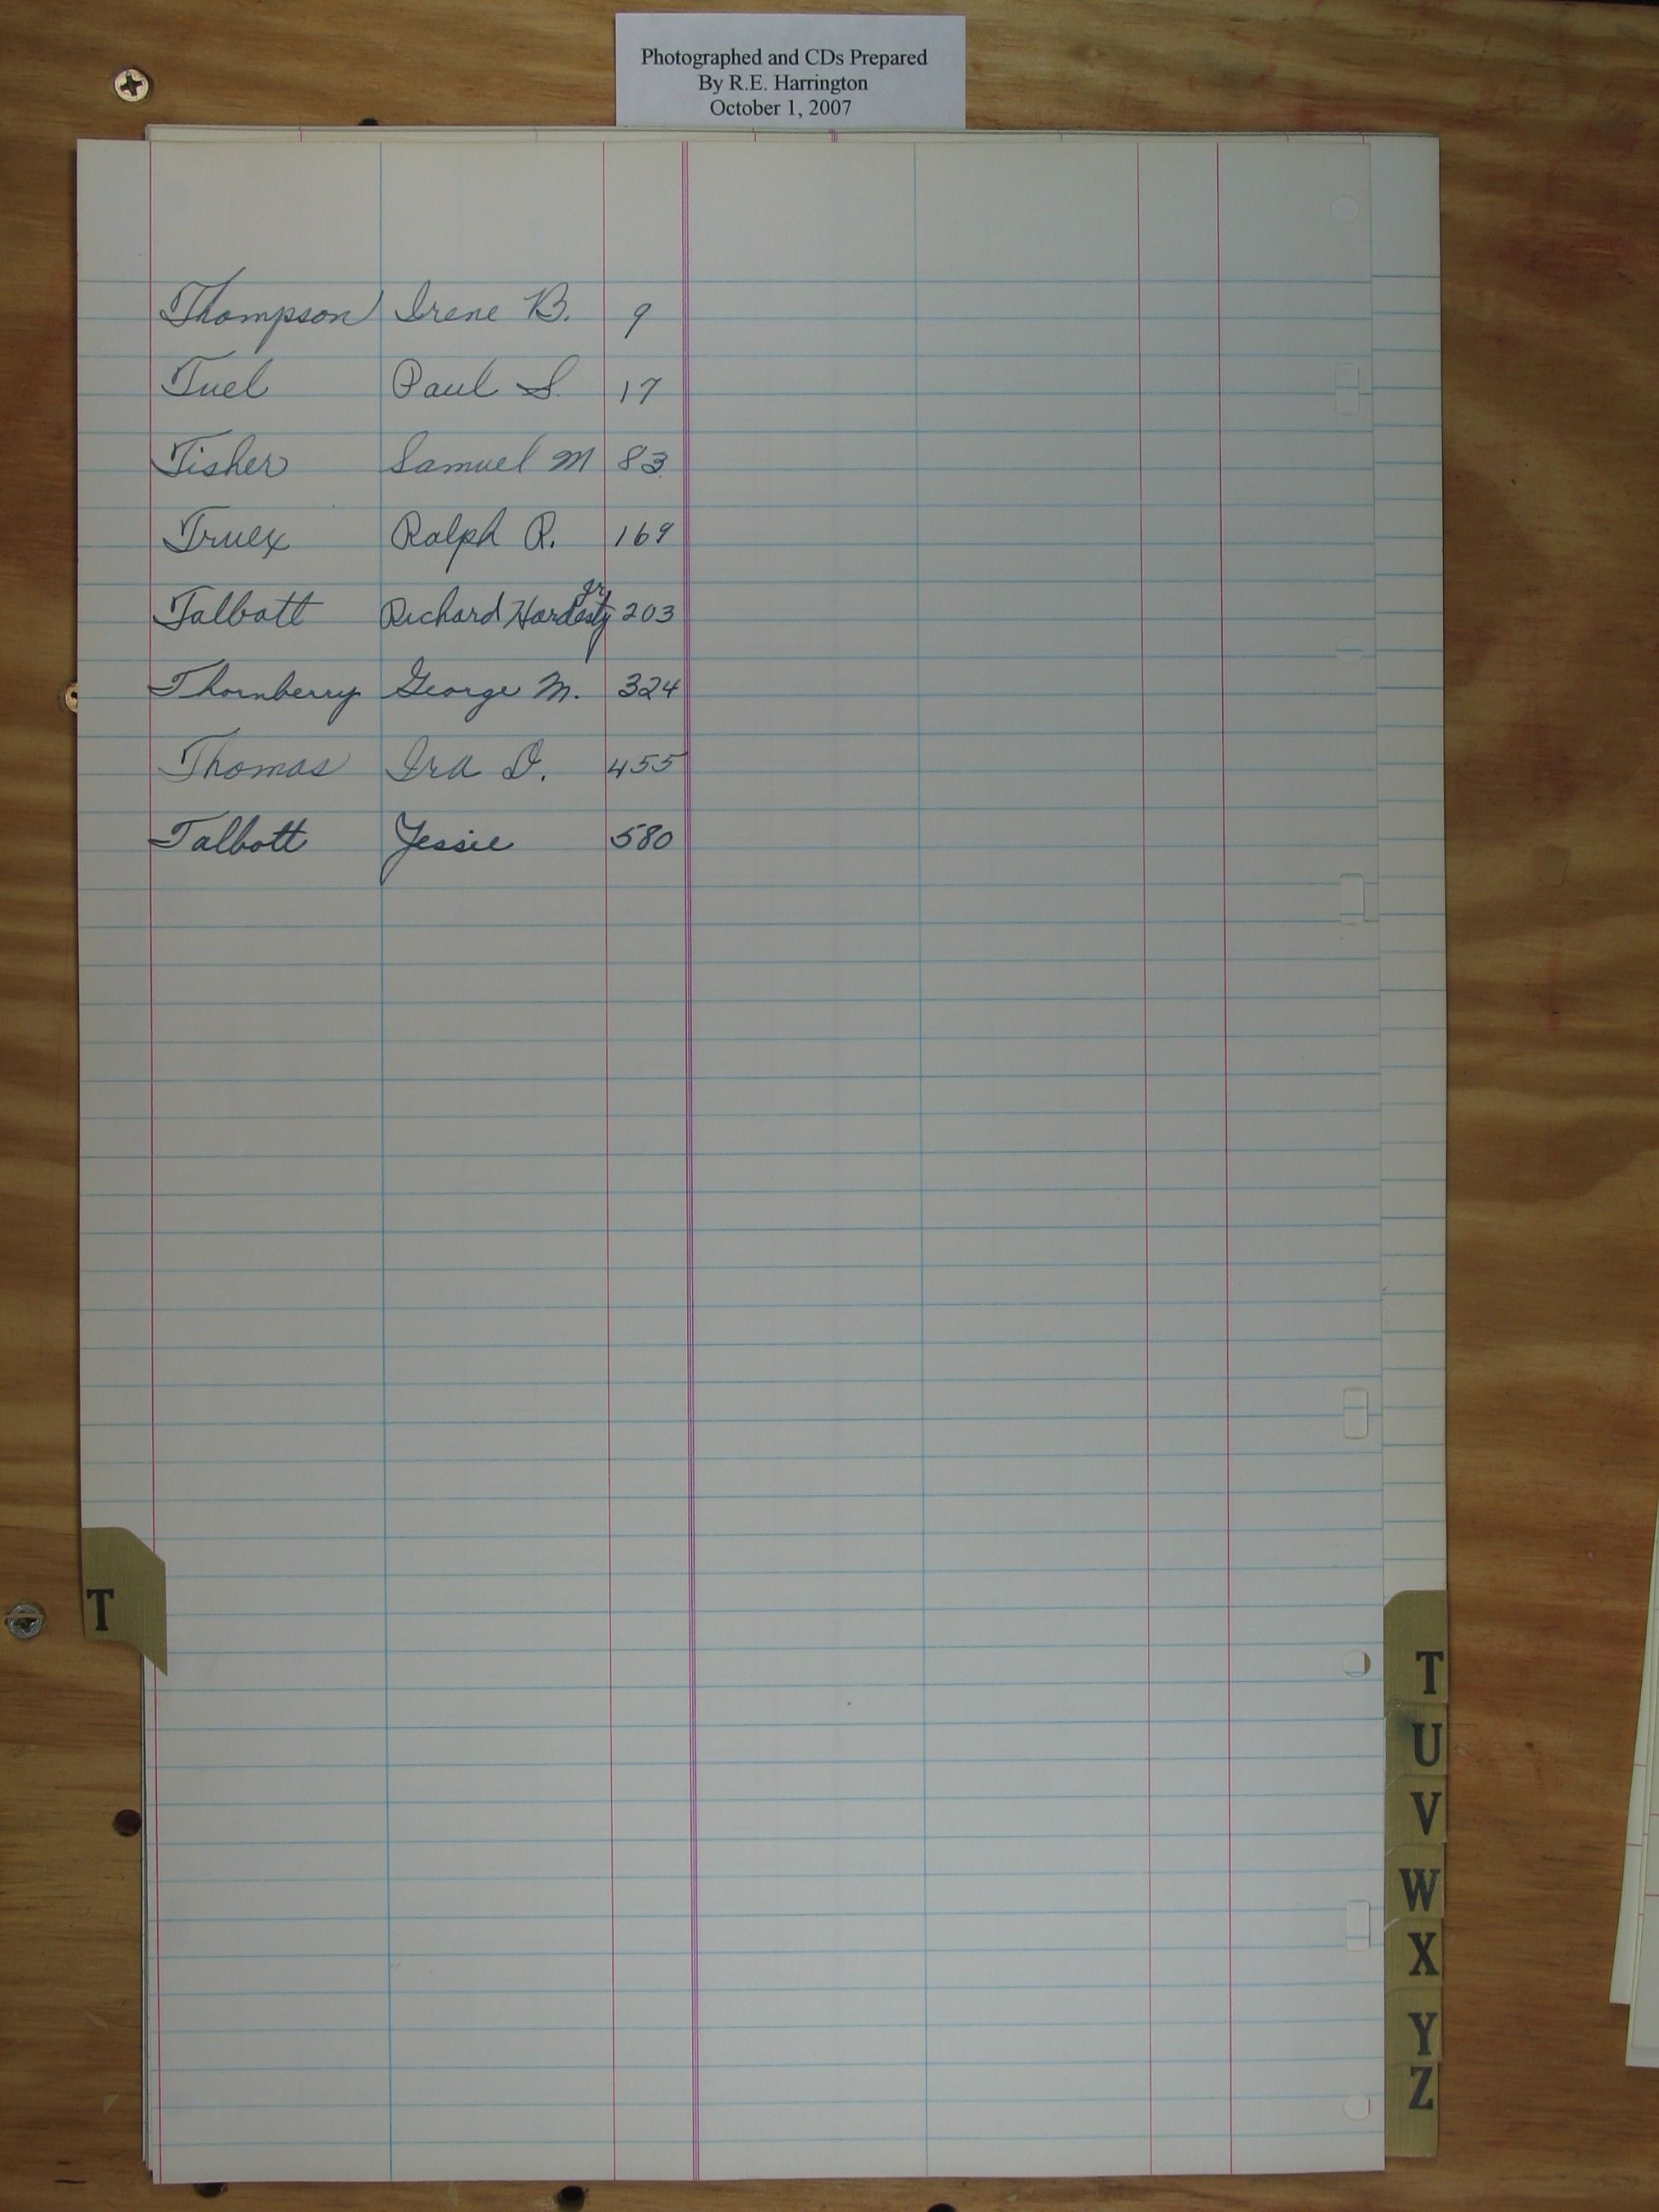 Photographed and CDs Prepared
By R.E. Harrington
October 1, 2007
Thompson Irene B. 9
Tuel Paul S. 17
Tisher Samuel M 83
Truex Ralph R. 169
Talbott Richard Hardesty Jr 203
Thornberry George M. 324
Thomas Ira D. 455
Talbott Jessie 580
T
T
U
V
W
X
Y
Z